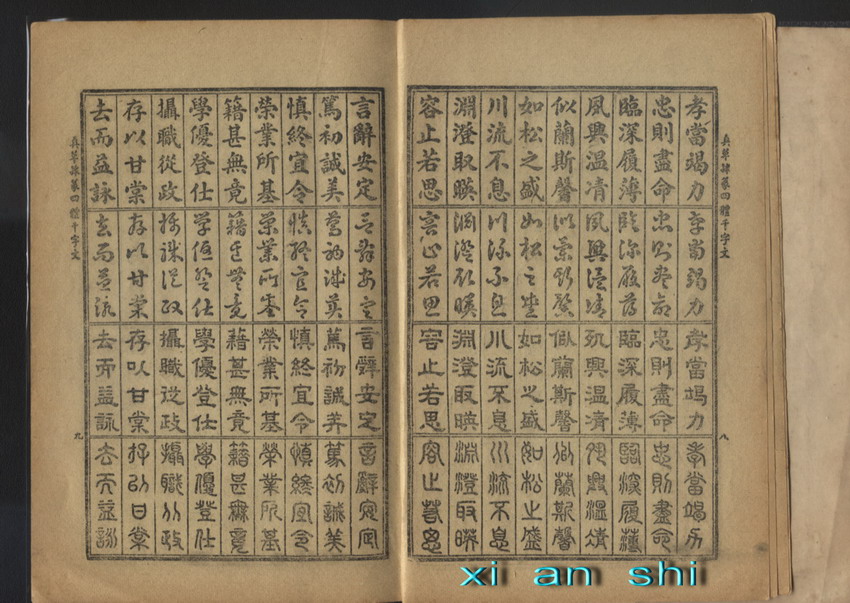 真草隸篆四體千字文 八
孝當竭力 孝當竭力 孝當竭力 孝當竭力
忠則盡命 忠則盡命 忠則盡命 忠則盡命
臨深履薄 臨深履薄 臨深履薄 臨深履薄
夙興溫凊 夙興溫凊 夙興溫凊 夙興溫凊
似蘭斯馨 似蘭斯馨 似蘭斯馨 似蘭斯馨
如松之盛 如松之盛 如松之盛 如松之盛
川流不息 川流不息 川流不息 川流不息
淵澄取暎 淵澄取暎 淵澄取暎 淵澄取暎
容止若思 容止若思 容止若思 容止若思
言辭安定 言辭安定 言辭安定 言辭安定
篤初誠美 篤初誠美 篤初誠美 篤初誠美
慎終宜令 慎終宜令 慎終宜令 慎終宜令
榮業所基 榮業所基 榮業所基 榮業所基
籍甚無竟 籍甚無竟 籍甚無竟 籍甚無竟
學優登仕 學優登仕 學優登仕 學優登仕
攝職從政 攝職從政 攝職從政 攝職從政
存以甘棠 存以甘棠 存以甘棠 存以甘棠
去而益詠 去而益詠 去而益詠 去而益詠
真草隸篆四體千字文 九
xi an shi